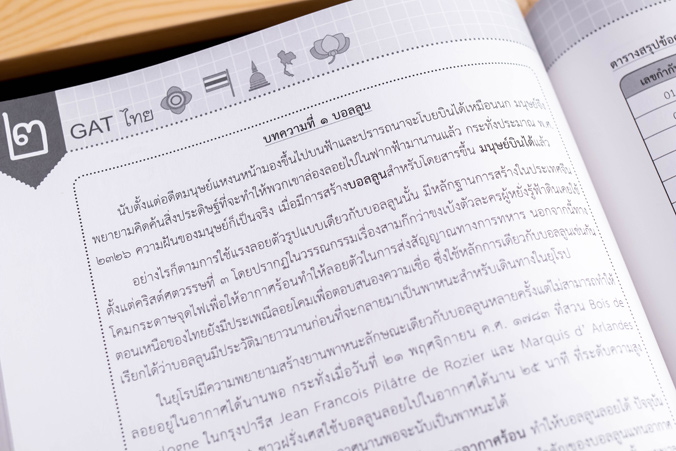 ๒
GAT ไทย
บทความที่ ๑ บอลลูน
นับตั้งแต่อดีตมนุษย์แหงนหน้ามองขึ้นไปบนฟ้าและปรารถนาจะโบยบินได้เหมือนนก มนุษย์จึง
พยายามคิดค้นสิ่งประดิษฐ์ที่จะทำให้พวกเขาล่องลอยไปในฟากฟ้ามานานแล้ว กระทั่งประมาณ พ.ศ.
๒๓๒๖ ความฝันของมนุษย์ก็เป็นจริง เมื่อมีการสร้างบอลลูนสำหรับโดยสารขึ้น มนุษย์บินได้แล้ว
อย่างไรก็ตามการใช้แรงลอยตัวรูปแบบเดียวกับบอลลูนนั้น มีหลักฐานการสร้างในประเทศจีน
ตั้งแต่คริสต์ศตวรรษที่ ๓ โดยปรากฏในวรรณกรรมเรื่องสามก๊กว่าขงเบ้งตัวละครผู้หยั่งรู้ฟ้าดินเคยใช้
โคมกระดาษจุดไฟเพื่อให้อากาศร้อนทำให้ลอยตัวในการส่งสัญญาณทางการทหาร นอกจากนี้ทาง
ตอนเหนือของไทยยังมีประเพณีลอยโคมเพื่อตอบสนองความเชื่อ ซึ่งใช้หลักการเดียวกับบอลลูนเช่นกัน
เรียกได้ว่าบอลลูนมีประวัติมายาวนานก่อนที่จะกลายมาเป็นพาหนะสำหรับเดินทางในยุโรป
ในยุโรปมีความพยายามสร้างยานพาหนะลักษณะเดียวกับบอลลูนหลายครั้งแต่ไม่สามารถทำให้
ลอยอยู่ในอากาศได้นานพอ กระทั่งเมื่อวันที่ ๒๑ พฤศจิกายน ค.ศ. ๑๗๘๓ ที่สวน Bois de
ในกรุงปารีส Jean Francois Pilâtre de Rozier และ Marquis d' Arlandes
ชาวฝรั่งเศสใช้บอลลูนลอยไปในอากาศได้นาน ๒๕ นาที ที่ระดับความสูง
นานพอจะนับเป็นพาหนะได้
อากาศร้อน ทำให้บอลลูนลอยได้ ปัจจุบัน
ของบอลลูนแทนอากาศ
ตารางสรุปข้อ
เลขกำกับ
01